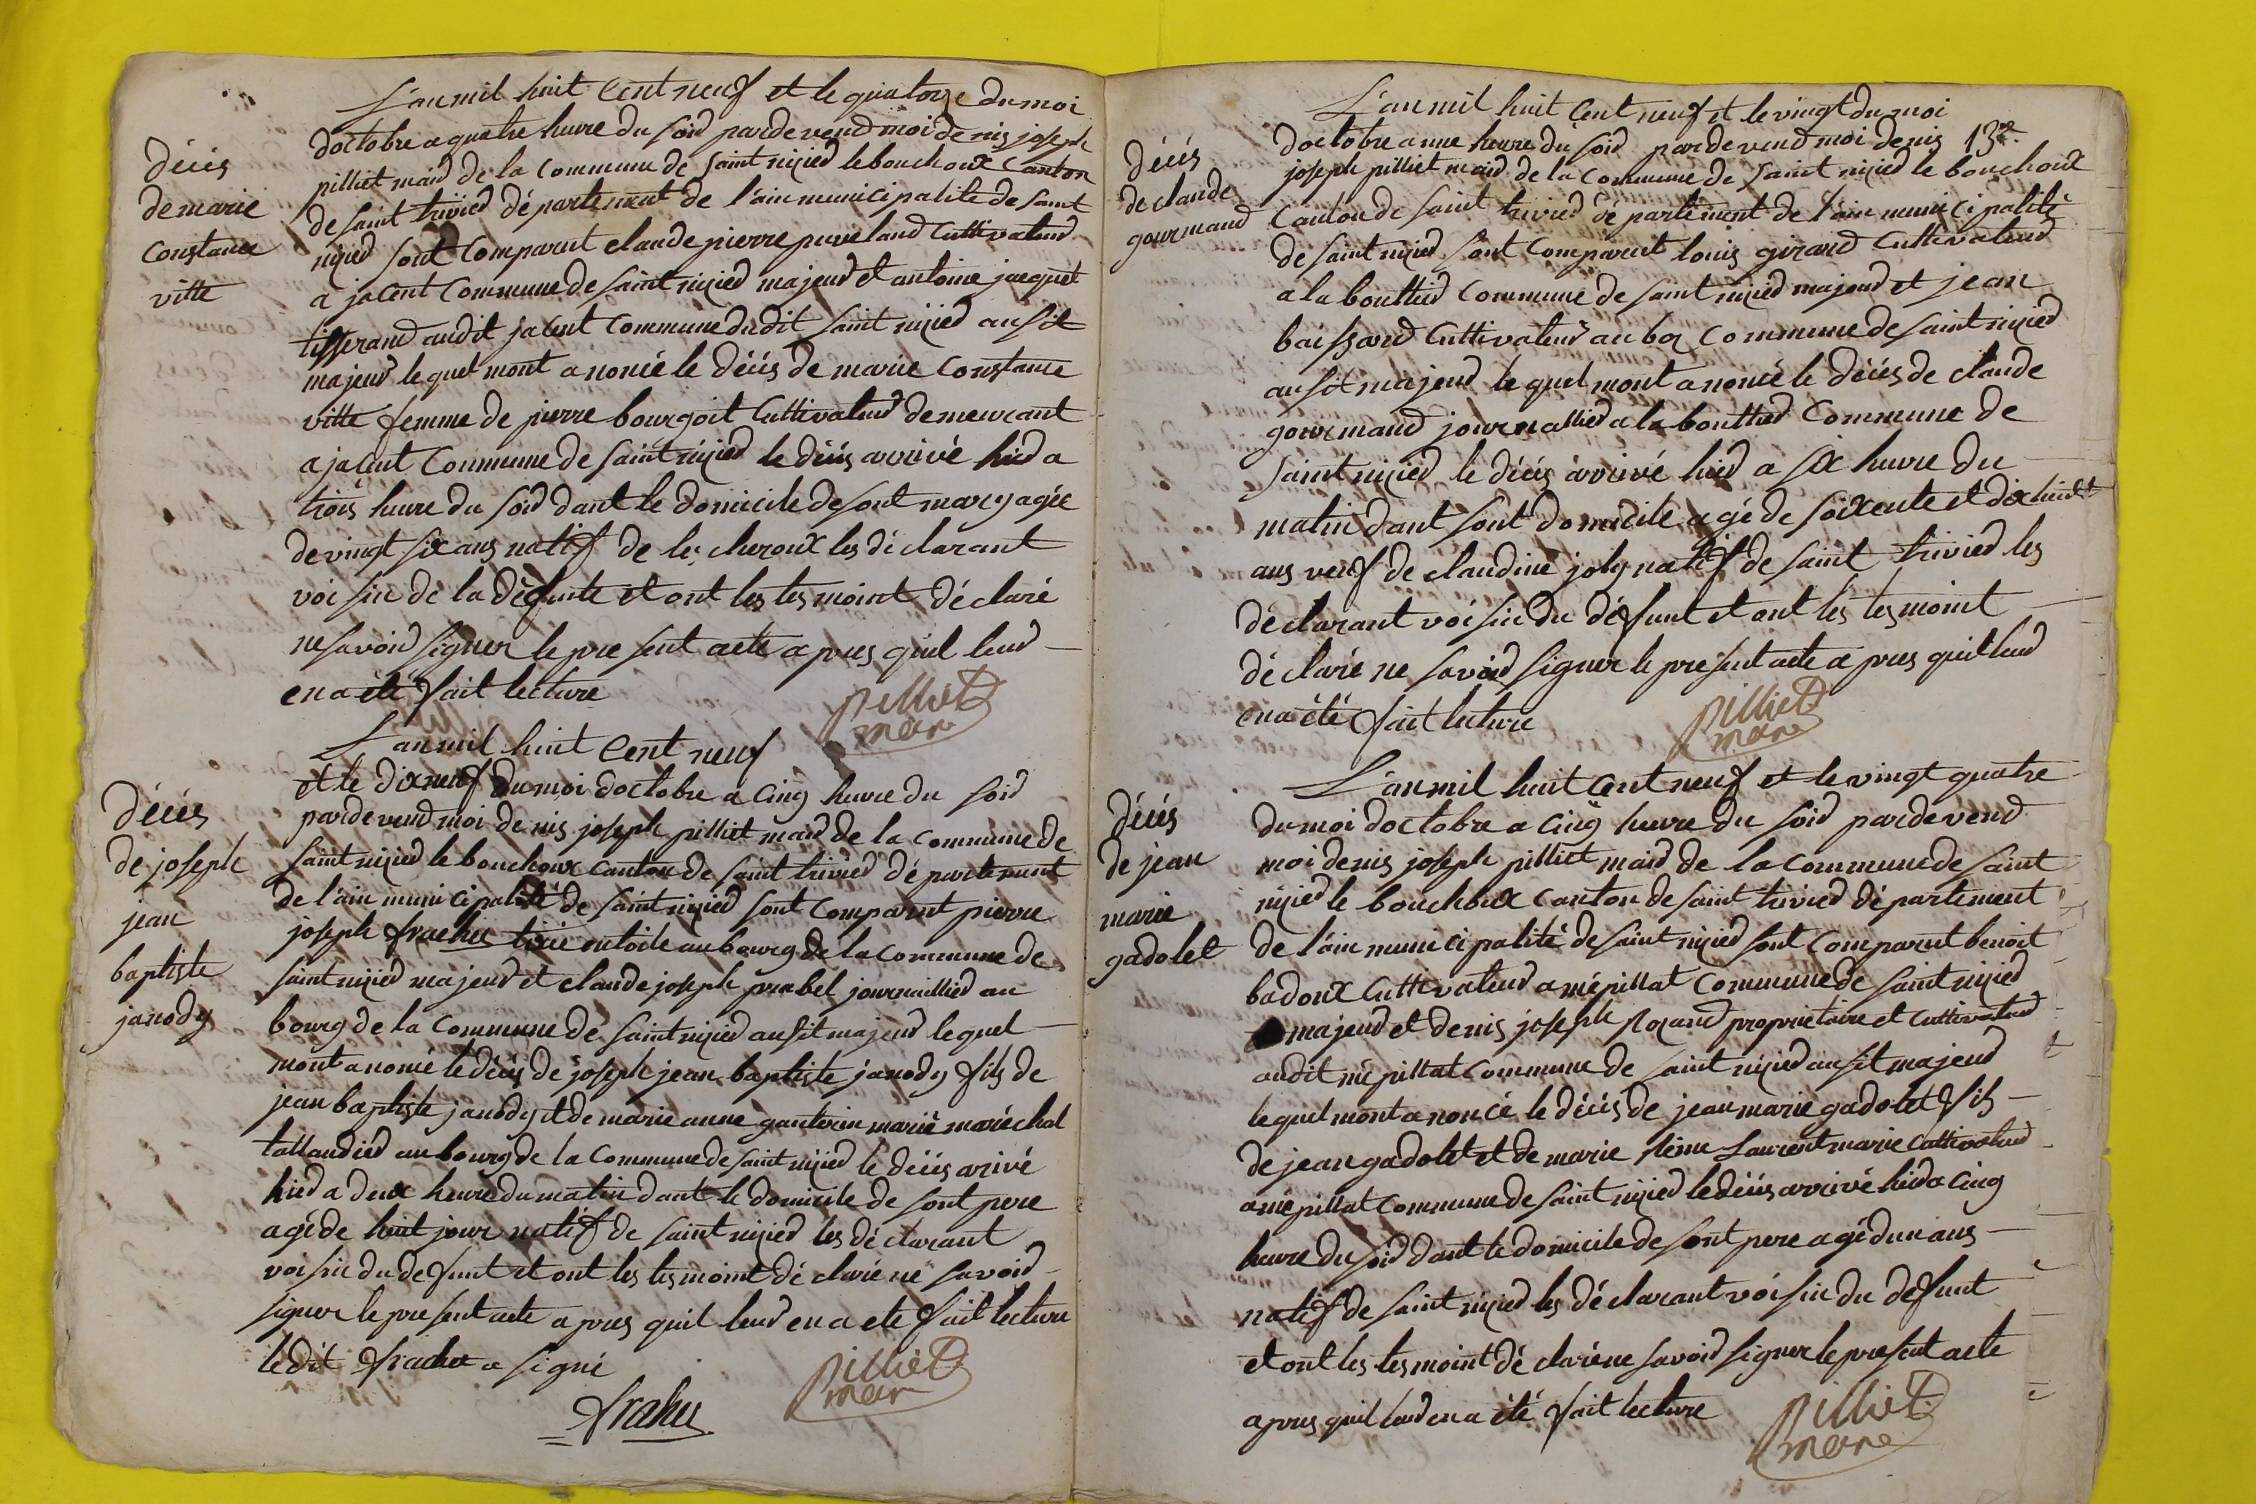 décés
de marie
constance
vitte
L'an mil huit cent neuf et le quatorze du moi
doctobre a quatre heure du soir pardevend moi denis joseph
pilliet maid de la commune de saint nizied le bouchoux canton
de saint trivied département de l'ain municipalité de saint
nizied sont comparut claude pierre puveland cultivateud
a jacent commune de saint nizied majeud et antoine jacquet
tisserand audit jacent commune dudit saint nizied ausit
majeud lequel mont anoncé le décés de marie constance
vitte femme de pierre bourgoit cultivateud demeurant
a jacent commune de saint nizied le décés arrivé hied a
trois heure du soid dant le domicile de sont mary agée
de vingt six ans natif de les cheroux les déclarant
voisin de la défunte et ont les tesmoint déclaré
ne savoid signer le present acte apres quil leud
en a été fait lecture
pilliet
mère
décés
de joseph
jean
baptiste
janody
L'an mil huit cent neuf
et le dixneuf du moi doctobre a cinq heure du soid
pardevend moi denis joseph pilliet maid de la commune de
saint nizied le bouchoux canton de saint trivied département
de l'ain municipalité de saint nizied sont comparut pierre
joseph frachu en toile au bourg de la commune de
saint nizied majeud et claude joseph prabel journaillied au
bourg de la commune de saint nizied ausit majeud lequel
mont anoncé le décés de joseph jean baptiste janody fils de
jean baptiste janody et de marie anne gauterin marié maréchal
tallandied au bourg de la commune de saint nizied le décés arivé
hied a deux heure du matin dant le domicile de sont pere
agé de huit jour natif de saint nizied les déclarant
voisin du defunt et ont les tesmoint déclaré ne savoid
signer le present acte apres quil leud en a ete fait lecture
ledit frachu a signé
pilliet
mère
frachu
13e.
décés
de claude
gourmand
L'an mil huit cent neuf et le vingt du moi
doctobre a une heure du soid pardevend moi denis
joseph pilliet maid de la commune de saint nizied le bouchoux
canton de saint trivied département de l'ain municipalité
de saint nizied sont comparut louis girand cultivateud
a la bouttied commune de saint nizied majeud et jean
baissard cultivateud au boz commune de saint nizied
ausit majeud lequel mont anoncé le décés de claude
gourmand journallied a la bouttied commune de
saint nizied le décés arrivé hied a six heure du
matin dant sont domicile agé de soixente et dixhuit
ans veuf de claudine joly natif de saint trivied les
déclarant voisin du défunt et ont les tesmoint
déclaré ne savoid signer le present acte apres quil leud
en a été fait lecture
pilliet
mère
décés
de jean
marie
gadolet
L'an mil huit cent neuf et le vingt quatre
du moi doctobre a cinq heure du soid pardevend
moi denis joseph pilliet maid de la commune de saint
nizied le bouchoux canton de saint trivied département
de l'ain municipalité de saint nizied sont comparut benoit
badoux cultivateud a mépillat commune de saint nizied
majeud et denis joseph rozand proprietaire et cultivateud
audit mépillat commune de saint nizied ausit majeud
lequel mont anoncé le décés de jean marie gadolet fils
de jean gadolet et de marie Laurent marie cultivateud
a mépillat commune de saint nizied le décés arrivé hied a cinq
heure du soid dant le domicile de sont pere agé dun ans
natif de saint nizied les déclarant voisin du défunt
et ont les tesmoint déclaré ne savoid signer le present acte
apres quil leud en a été fait lecture
pilliet
mère